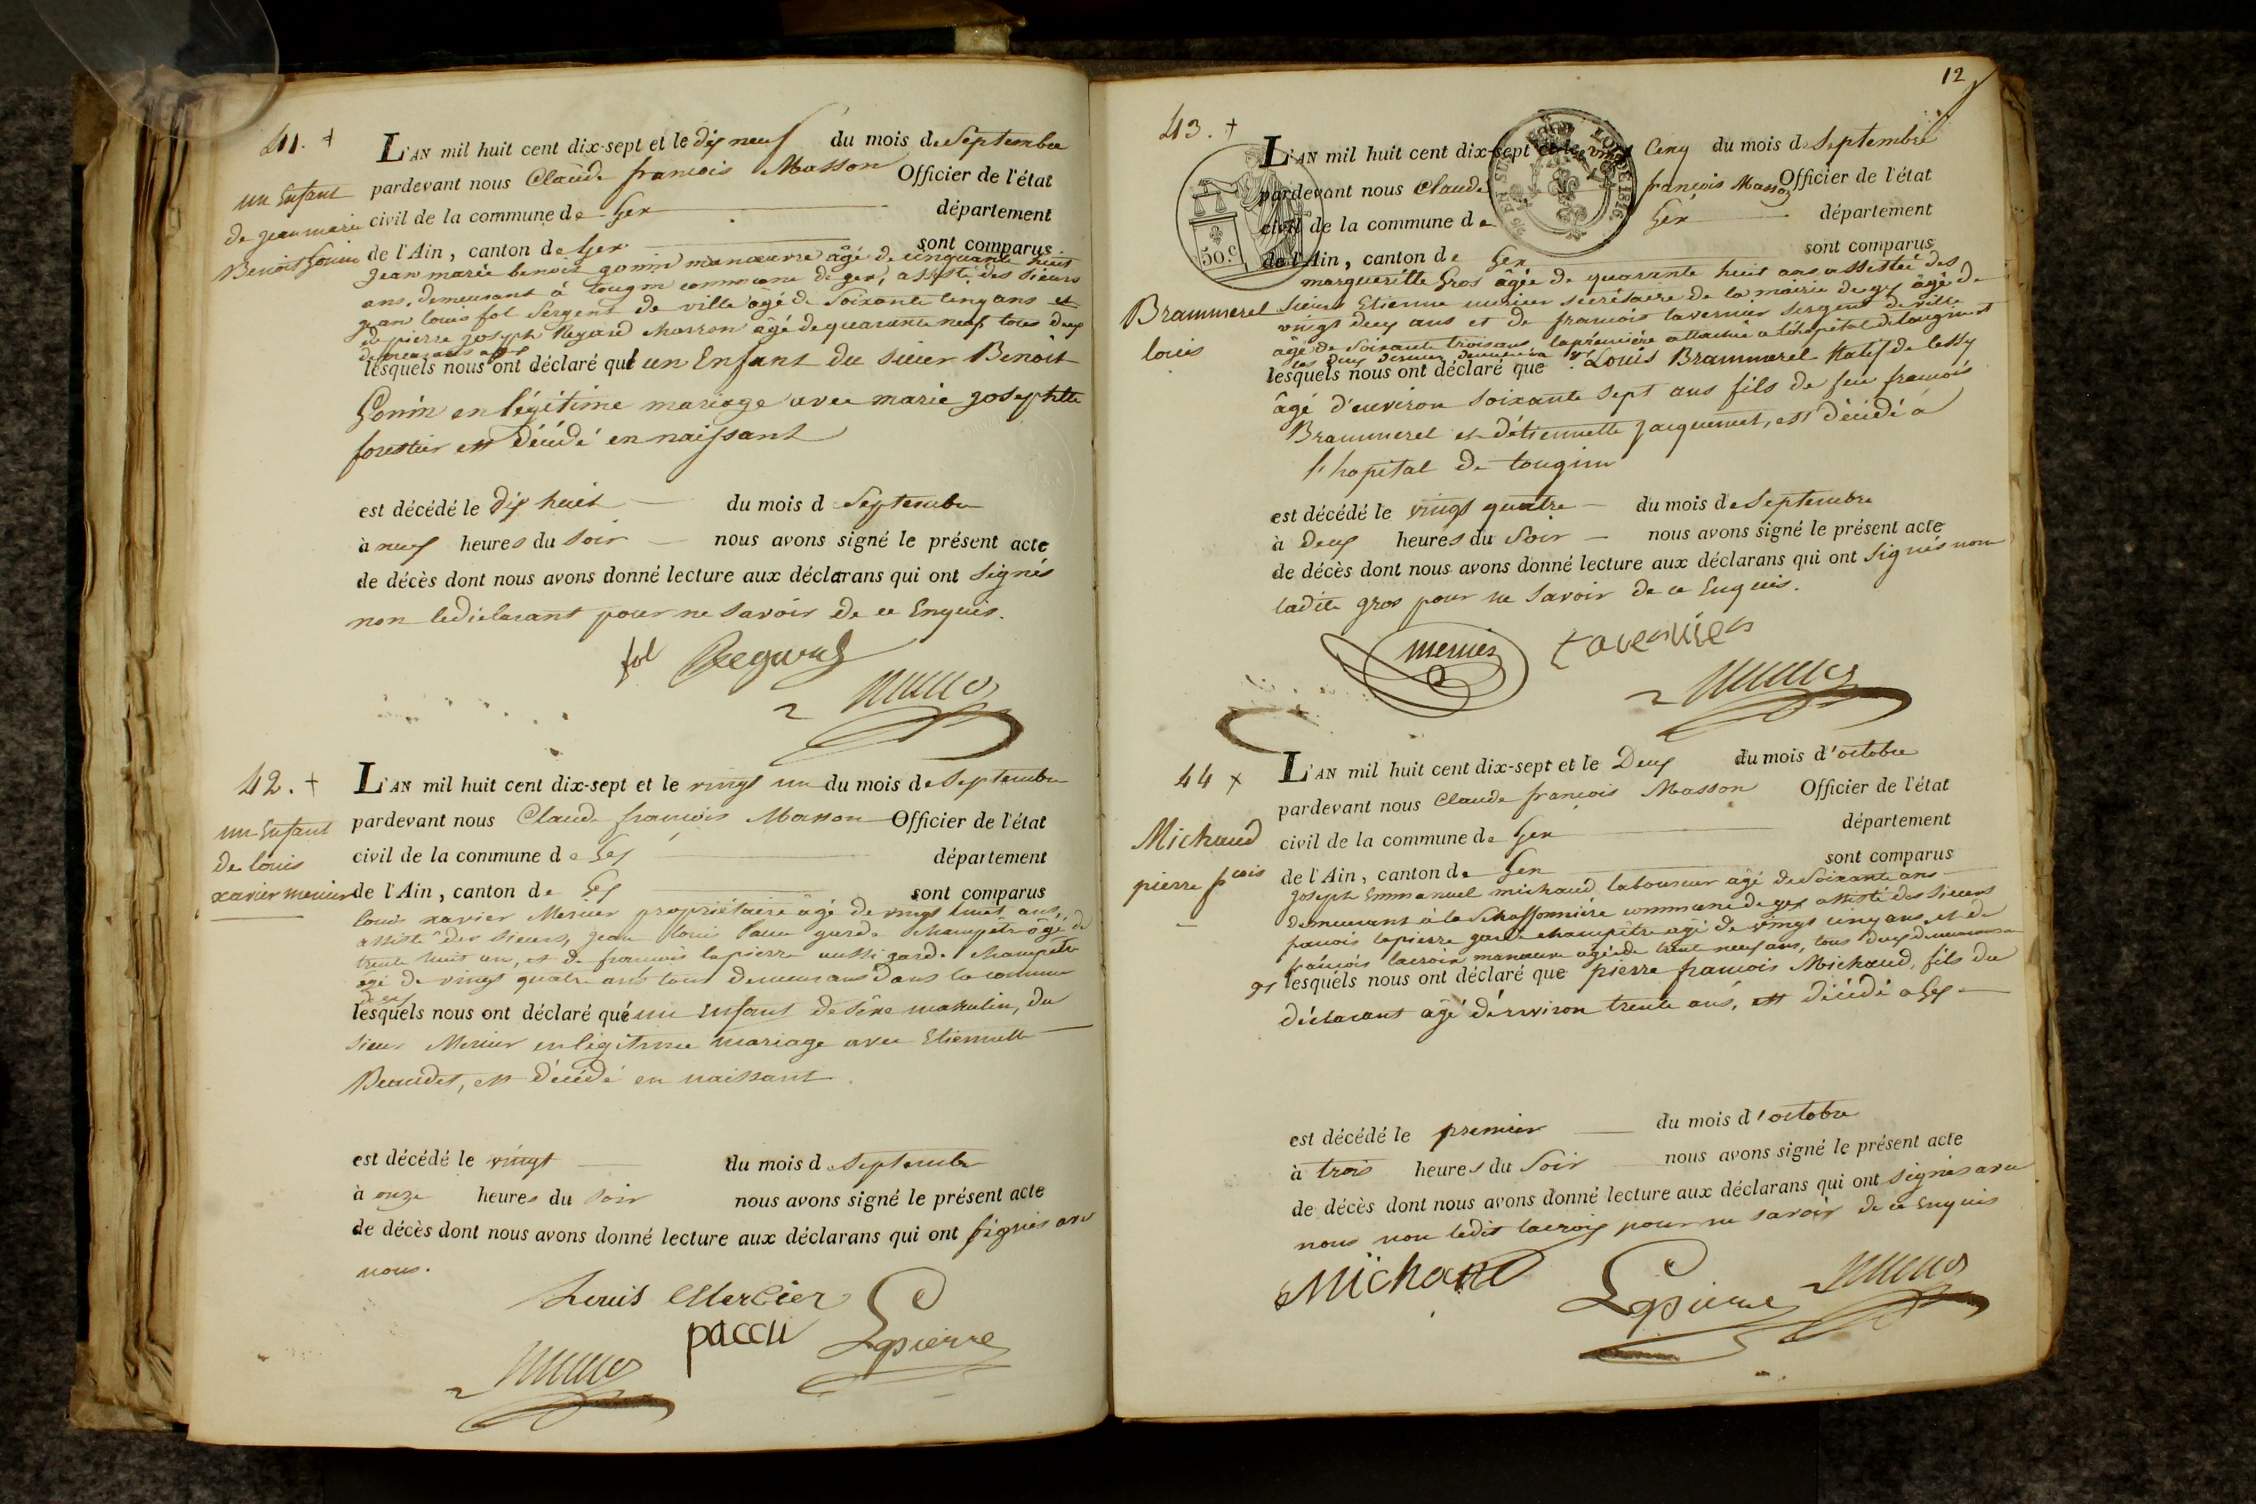 41. +
un Enfant
de jean marie
Benoit Gonin
L'AN mil huit cent dix-sept et le dix neuf du mois de Septembre
pardevant nous Claude francois Masson Officier de l'état
civil de la commune de Gex département
de l'Ain, canton de Gex sont comparus
jean marie benoit gonin manoeuvre âgé de cinquante huit
ans, demeurant à tougin commune de gex, assisté des sieurs
jean louis fol Sergent de ville âgé de Soixante cinq ans et
de pierre joseph Regard charron âgé de quarante neuf tous deux
demeurans à gex
lesquels nous ont déclaré que un Enfant du sieur Benoit
Gonin en légitime mariage avec marie josephtte
forestier est décédé en naissant
est décédé le dix huit du mois d Septembre
à neuf heures du Soir nous avons signé le présent acte
de décès dont nous avons donné lecture aux déclarans qui ont Signés
non le déclarant pour ne savoir de ce Enquis.
fol Regard
42. +
un Enfant
de louis
xavier mercier
L'AN mil huit cent dix-sept et le vingt un du mois de Septembre
pardevant nous Claude francois Masson Officier de l'état
civil de la commune de Gex département
de l'Ain, canton de Gex sont comparus
louis xavier Mercier propriétaire âgé de vingt huit ans,
assisté des sieurs, jean louis garde champêtre âgé de
trente huit an, et de francois lapierre aussi garde champêtre
âgé de vingt quatre ans tous demeurans dans la commune
de gex
lesquels nous ont déclaré que un enfant de sexe maskulin, du
sieur Mercier en légitime mariage avec Etiennette
Beaudet, est décédé en naissant
est décédé le vingt du mois d Septembre
à onze heures du soir nous avons signé le présent acte
de décès dont nous avons donné lecture aux déclarans qui ont signés avec
nous.
Louis Mercier
paccu Lapierre
12
43. +
Brammerel
louis
50 c
LOI DE 1816
L'AN mil huit cent dix-sept et le vingt Cinq du mois de Septembre
pardevant nous Claude françois Masson Officier de l'état
civil de la commune de Gex département
de l'Ain, canton de Gex sont comparus
margueritte Gros âgée de quarante huit ans assistée des
sieurs Etienne mercier secrétaire de la mairie de gex âgé de
vingt deux ans et de francois tavernier sergent de ville
âgé de Soixante trois ans, la première attachée a l'hopital de tougin et
les deux derniers
lesquels nous ont déclaré que Louis Brammerel Natif de lessy
âgé d'environ soixante sept ans fils de feu françois
Brammerel et d'étiennette jacquemet, est décédé à
l'hopital de tougin
est décédé le vingt quatre du mois de Septembre
à Deux heures du Soir nous avons signé le présent acte
de décès dont nous avons donné lecture aux déclarans qui ont Signés non
ladite gros pour ne savoir de ce Enquis.
mercier tavernier
44 x
Michaud
pierre fcois
L'AN mil huit cent dix-sept et le Deux du mois d'octobre
pardevant nous Claude françois Masson Officier de l'état
civil de la commune de Gex département
de l'Ain, canton de Gex sont comparus
joseph Emmanuel michaud laboureur âgé de Soixante ans
demeurant à la commune de gex assisté des sieurs
francois lapierre garde champêtre âgé de vingt cinq ans, et de
francois lacroix manoeuvre agé de trente neuf ans, tous deux demeurans a
gx lesquels nous ont déclaré que pierre francois Michaud, fils du
déclarant âgé d'environ trente ans, est décédé a Gex
est décédé le premier du mois d'octobre
à trois heures du Soir nous avons signé le présent acte
de décès dont nous avons donné lecture aux déclarans qui ont signés avec
nous non ledit lacroix pour ne savoir de ce Enquis
Michaud Lapierre